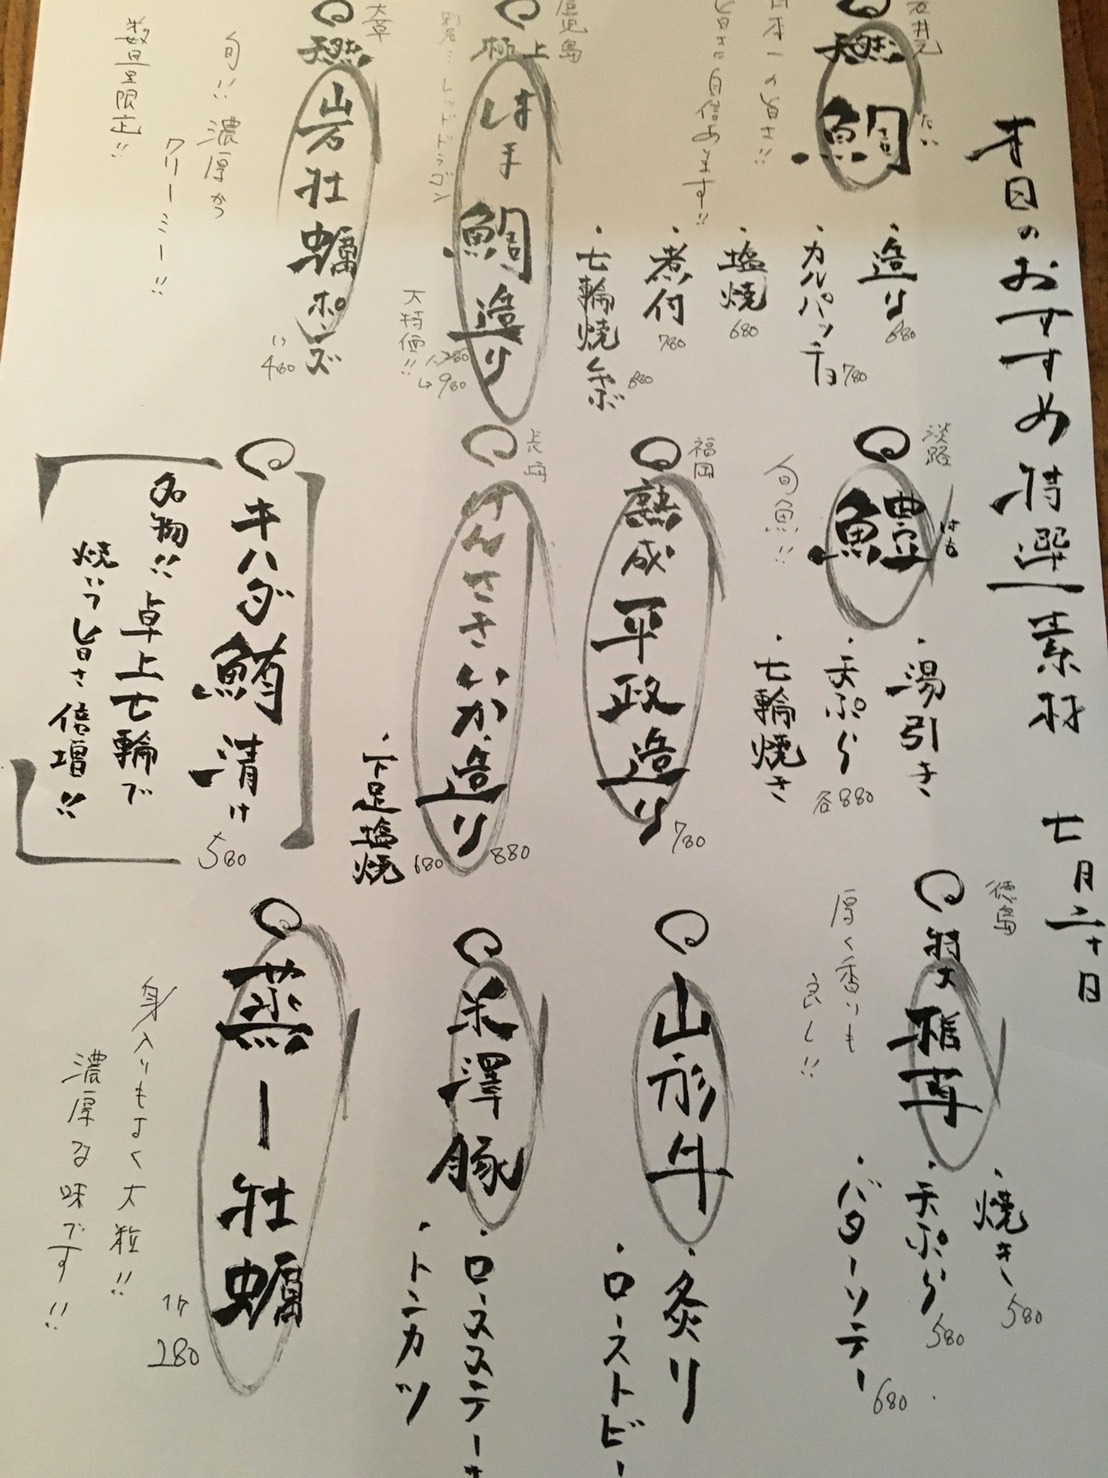 本日のおすすめ特選素材 七月二十日
天然 鯛
たい
日本一の旨さ!!
旨さ自信あります!!
・造り 880
・カルパッチョ 780
・塩焼 680
・煮付 780
・七輪焼
鹿児島
極上 はま鯛造り
大特価!!
980
天草
天然 岩牡蠣ポンズ
480
旬!! 濃厚かつ
クリーミー!!
数量限定!!
淡路
鱧
はも
旬魚!!
・湯引き
・天ぷら
・七輪焼き
各880
福岡
熟成 平政造り
780
長崎
けんさきいか造り
880
・下足塩焼
680
キハダ鮪漬け
580
名物!! 卓上七輪で
焼いて旨さ倍増!!
徳島
特大 椎茸
厚く香りも
良し!!
・焼き 580
・天ぷら 580
・バターソテー 680
山形牛
・炙り
・ローストビー
米澤豚
・ロースステーキ
・トンカツ
蒸し牡蠣
280
身入りもよく大粒!!
濃厚な味です!!